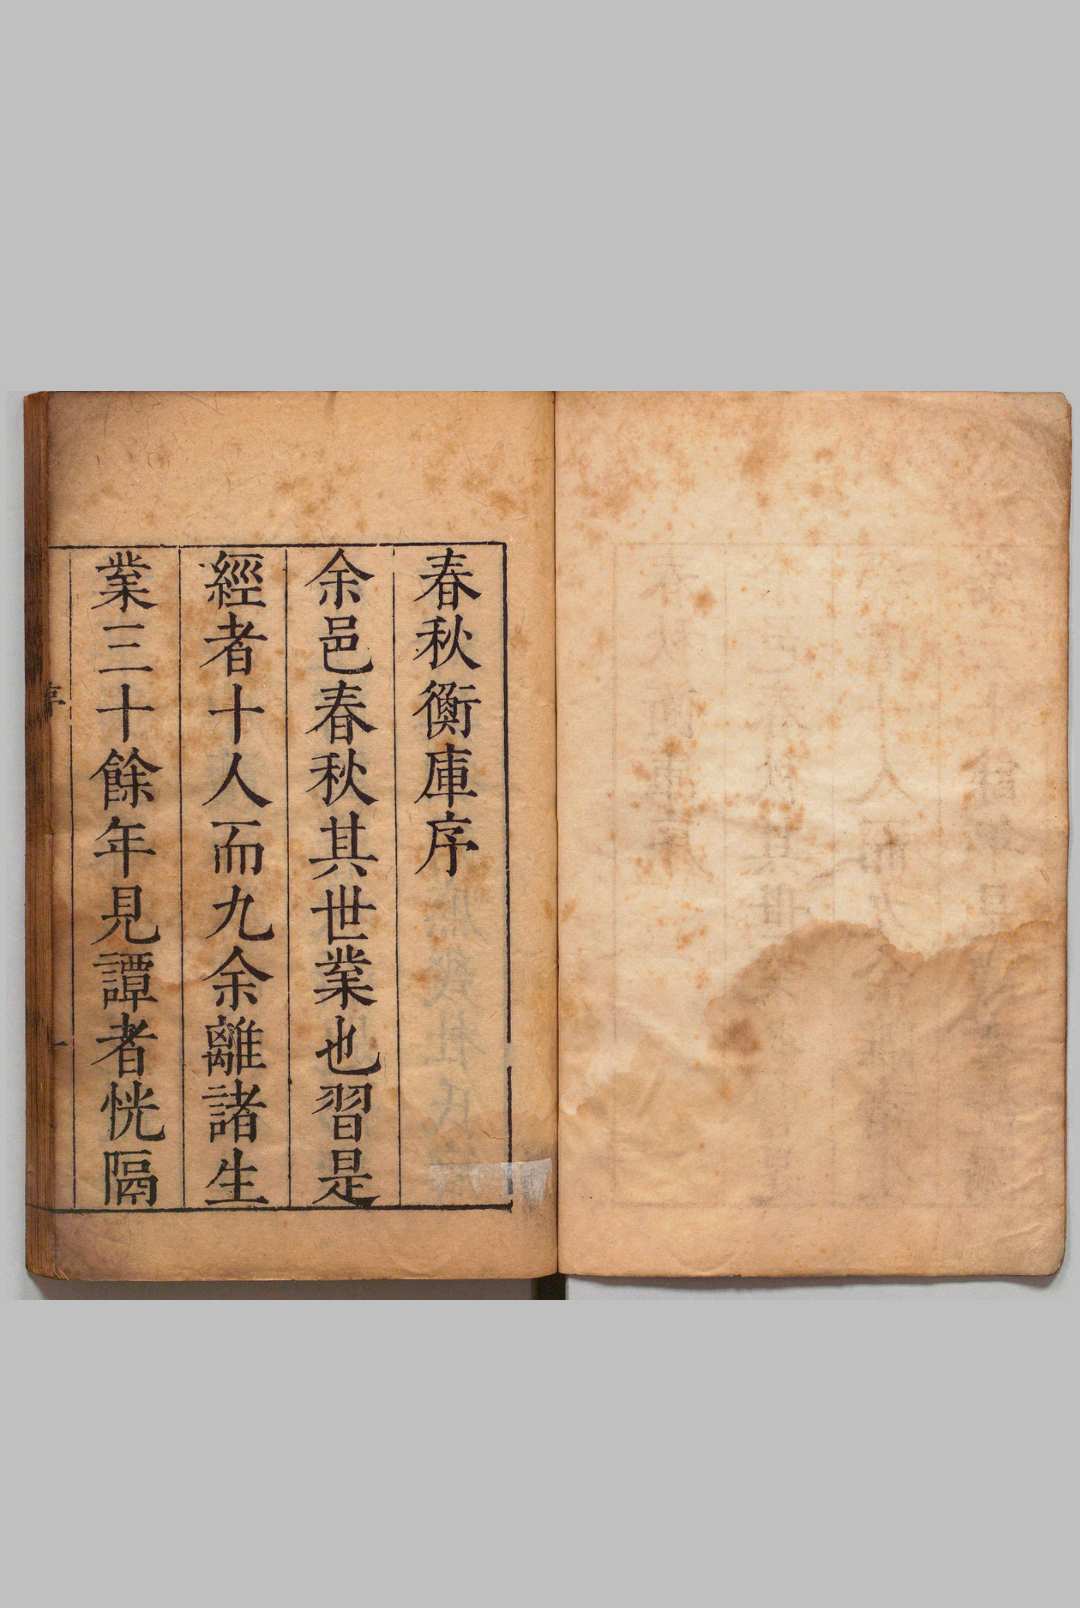 春秋衡庫序
余邑春秋其世業也習是
經者十人而九余離諸生
業三十餘年見譚者恍隔
序
一